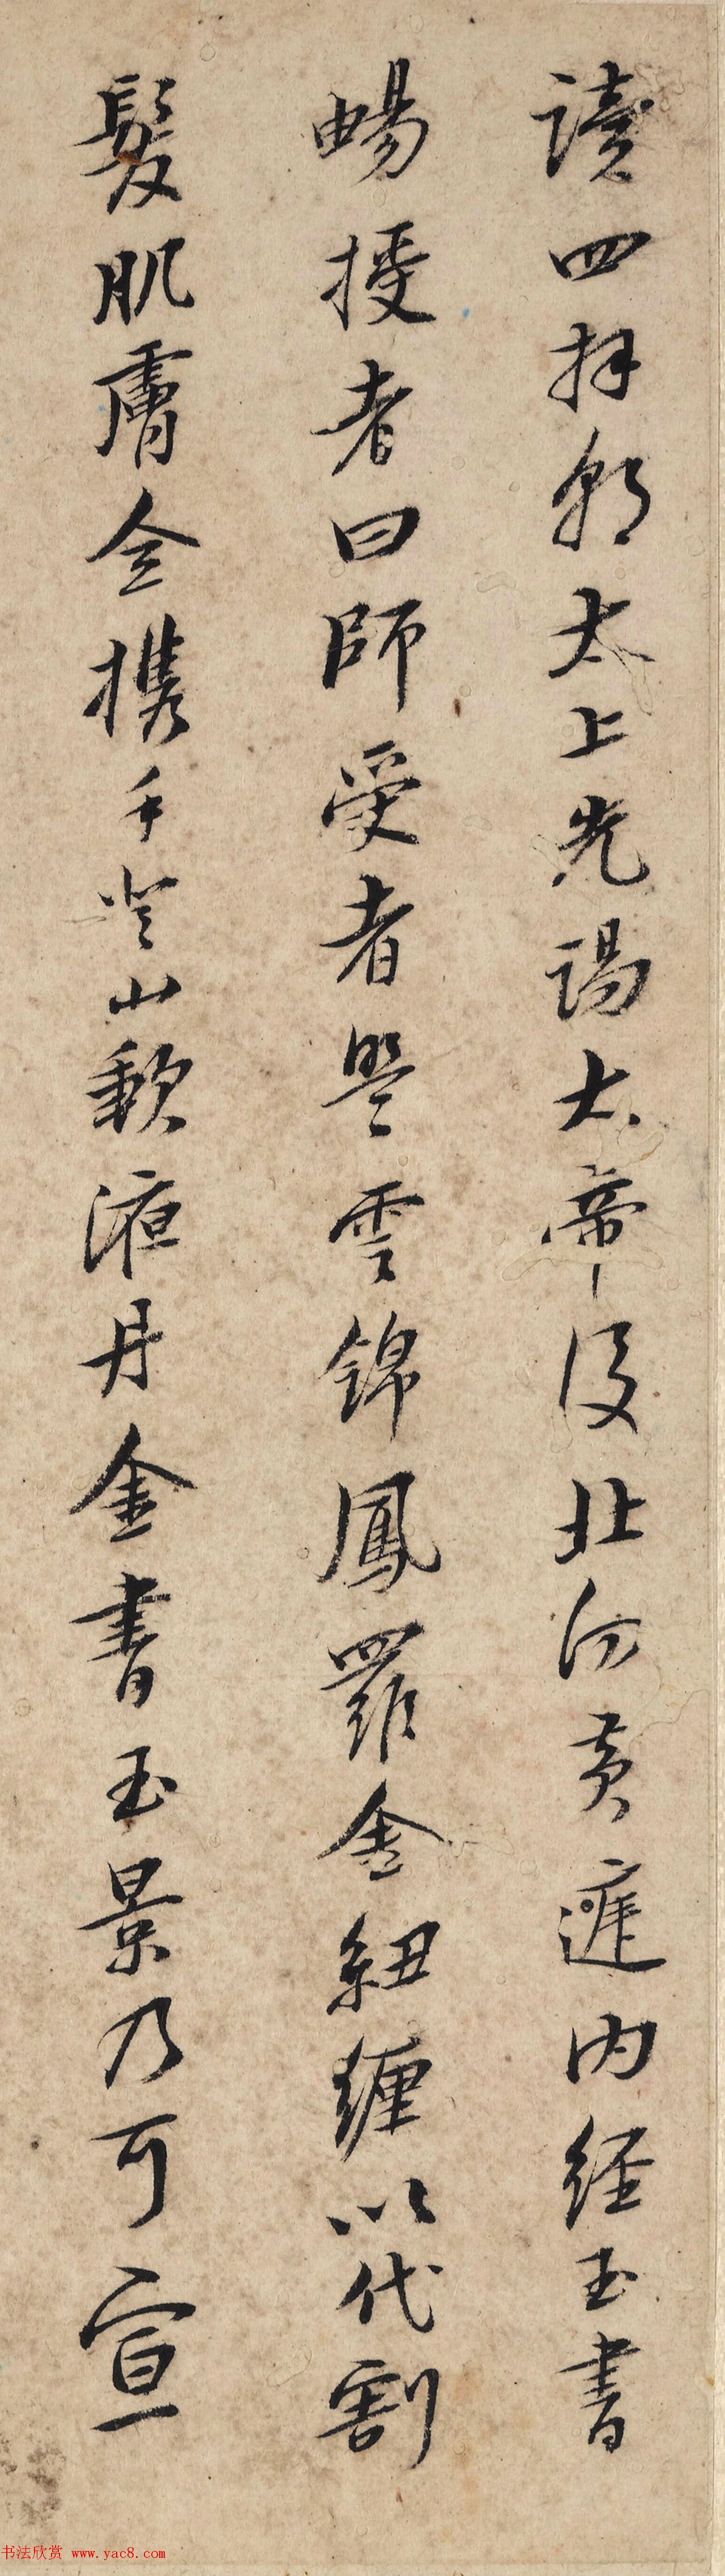 讀四拜朝太上先謁太帝後北向黄庭内經玉書
暢授者曰師受者盟雲錦鳳羅金紐纏以代割
髮肌膚全攜手登山歃液丹金書玉景乃可宣
书法欣赏 www.yac8.com